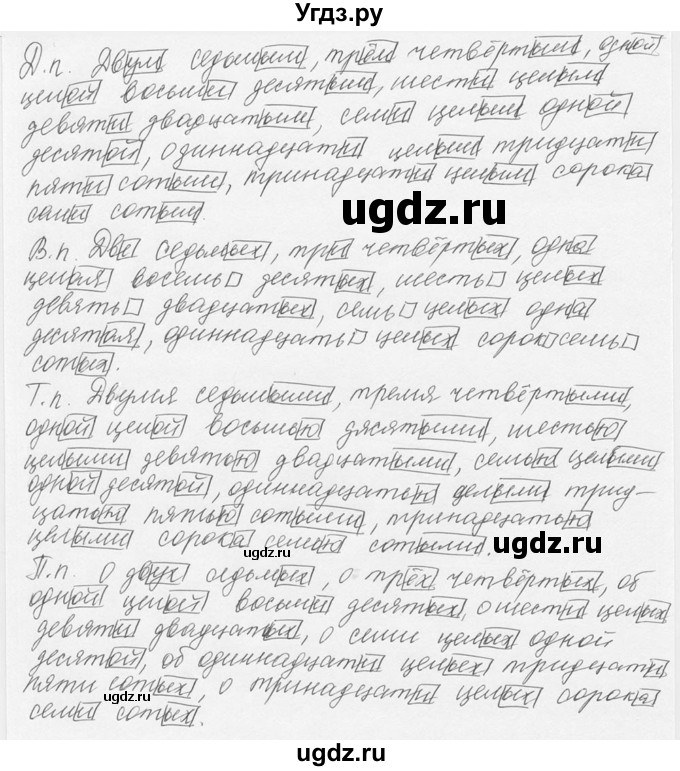 Угдз.ру
Д.п. Двум седьмым, трём четвёртым, одной
целой восьми десятым, шести целым
девяти двадцатым, семи целым одной
десятой, одиннадцати целым тридцати
пяти сотым, тринадцати целым сорока
семи сотым.
ugdz.ru
В.п. Две седьмых, три четвёртых, одна
целая восемь десятых, шесть целых
девять двадцатых, семь целых одна
десятая, одиннадцать целых сорок семь
сотых.
Т.п. Двумя седьмыми, тремя четвёртыми,
одной целой восьмью дясятыми, шестью
целыми девятью двадцатыми, семью целыми
одной десятой, одиннадцатью целыми трид-
цатью пятью сотыми, тринадцатью
целыми сорока семью сотыми.
ugdz.ru
ugdz.ru
П.п. О двух седьмых, о трёх четвёртых, об
одной целой восьми десятых, о шести целых
девяти двадцатых, о семи целых одной
десятой, об одиннадцати целых тридцати
пяти сотых, о тринадцати целых сорока
семи сотых.
ugdz.ru
ugdz.ru
ugdz.ru